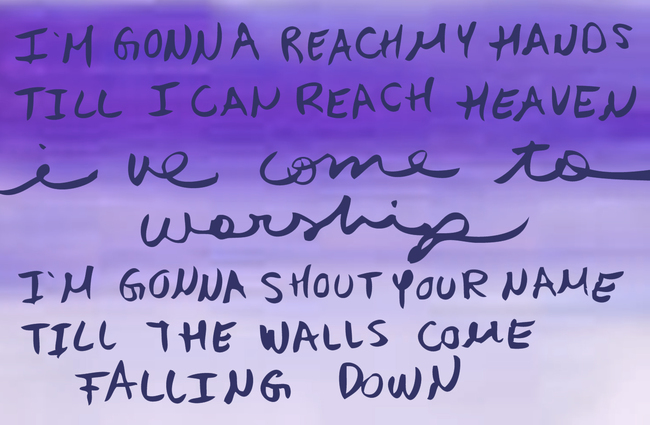 I'M GONNA REACH MY HANDS
TILL I CAN REACH HEAVEN
i've come to
worship
I'M GONNA SHOUT YOUR NAME
TILL THE WALLS COME
FALLING DOWN